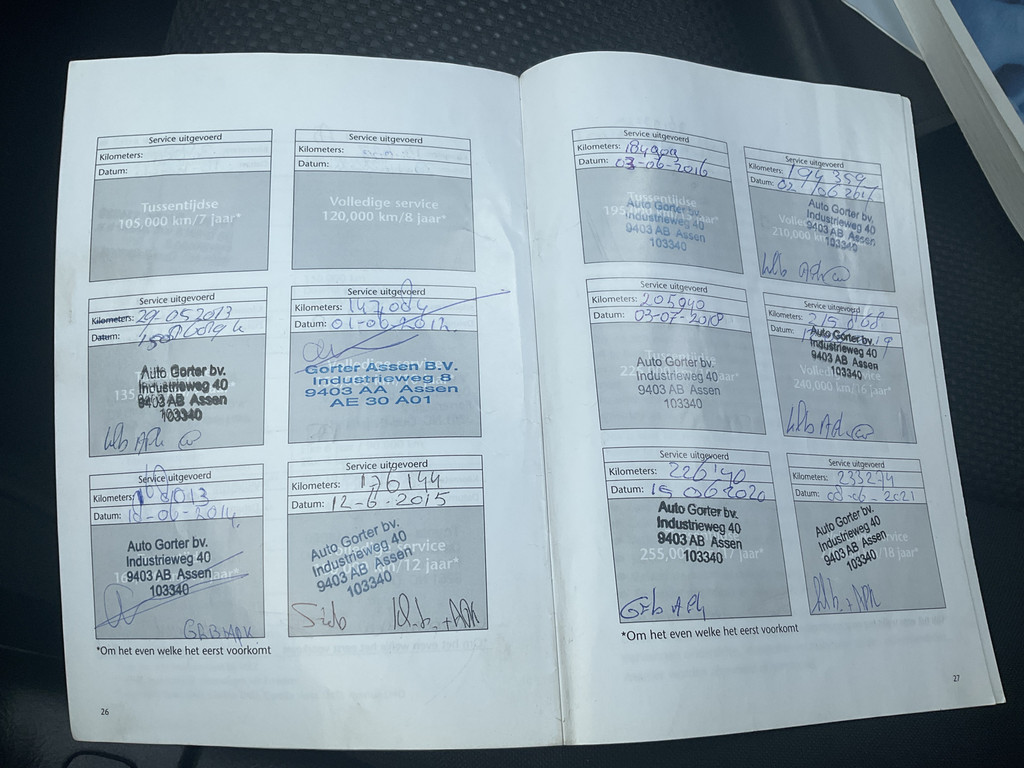 Service uitgevoerd
Kilometers:
Datum:
Tussentijdse
105,000 km/7 jaar*
Service uitgevoerd
Kilometers:
Datum:
Volledige service
120,000 km/8 jaar*
Service uitgevoerd
Kilometers: 29-05-2013
Datum:
135
Auto Gorter bv.
Industrieweg 40
9403 AB Assen
103340
Service uitgevoerd
Kilometers: 147.084
Datum: 01-06-2012.
Volledige service
Gorter Assen B.V.
Industrieweg 8
9403 AA Assen
AE 30 A01
Service uitgevoerd
Kilometers:
Datum: -06-2014.
Auto Gorter bv.
Industrieweg 40
9403 AB Assen
103340
jaar*
Service uitgevoerd
Kilometers: 176144
Datum: 12-6-2015
Auto Gorter bv.
Industrieweg 40
9403 AB Assen
103340
service
/12 jaar*
*Om het even welke het eerst voorkomt
26
Service uitgevoerd
Kilometers:
Datum: 03-06-2016
Tussentijdse
195, jaar*
Auto Gorter bv.
Industrieweg 40
9403 AB Assen
103340
Service uitgevoerd
Kilometers: 194 359
Datum: 02/06
210,000 km
Auto Gorter bv.
Industrieweg 40
9403 AB Assen
103340
Service uitgevoerd
Kilometers: 205940
Datum: 03-07-2018
Auto Gorter bv.
Industrieweg 40
9403 AB Assen
103340
Service uitgevoerd
Kilometers:
Datum: 19
Auto Gorter bv.
Industrieweg 40
9403 AB Assen
103340
240,000 km/16 jaar*
Service uitgevoerd
Kilometers: 226140
Datum: 15 06 2020
Auto Gorter bv.
Industrieweg 40
9403 AB Assen
103340
255,00 /17 jaar*
Service uitgevoerd
Kilometers: 233274
Datum: -06-2021
Auto Gorter bv.
Industrieweg 40
9403 AB Assen
103340
/18 jaar*
*Om het even welke het eerst voorkomt
27